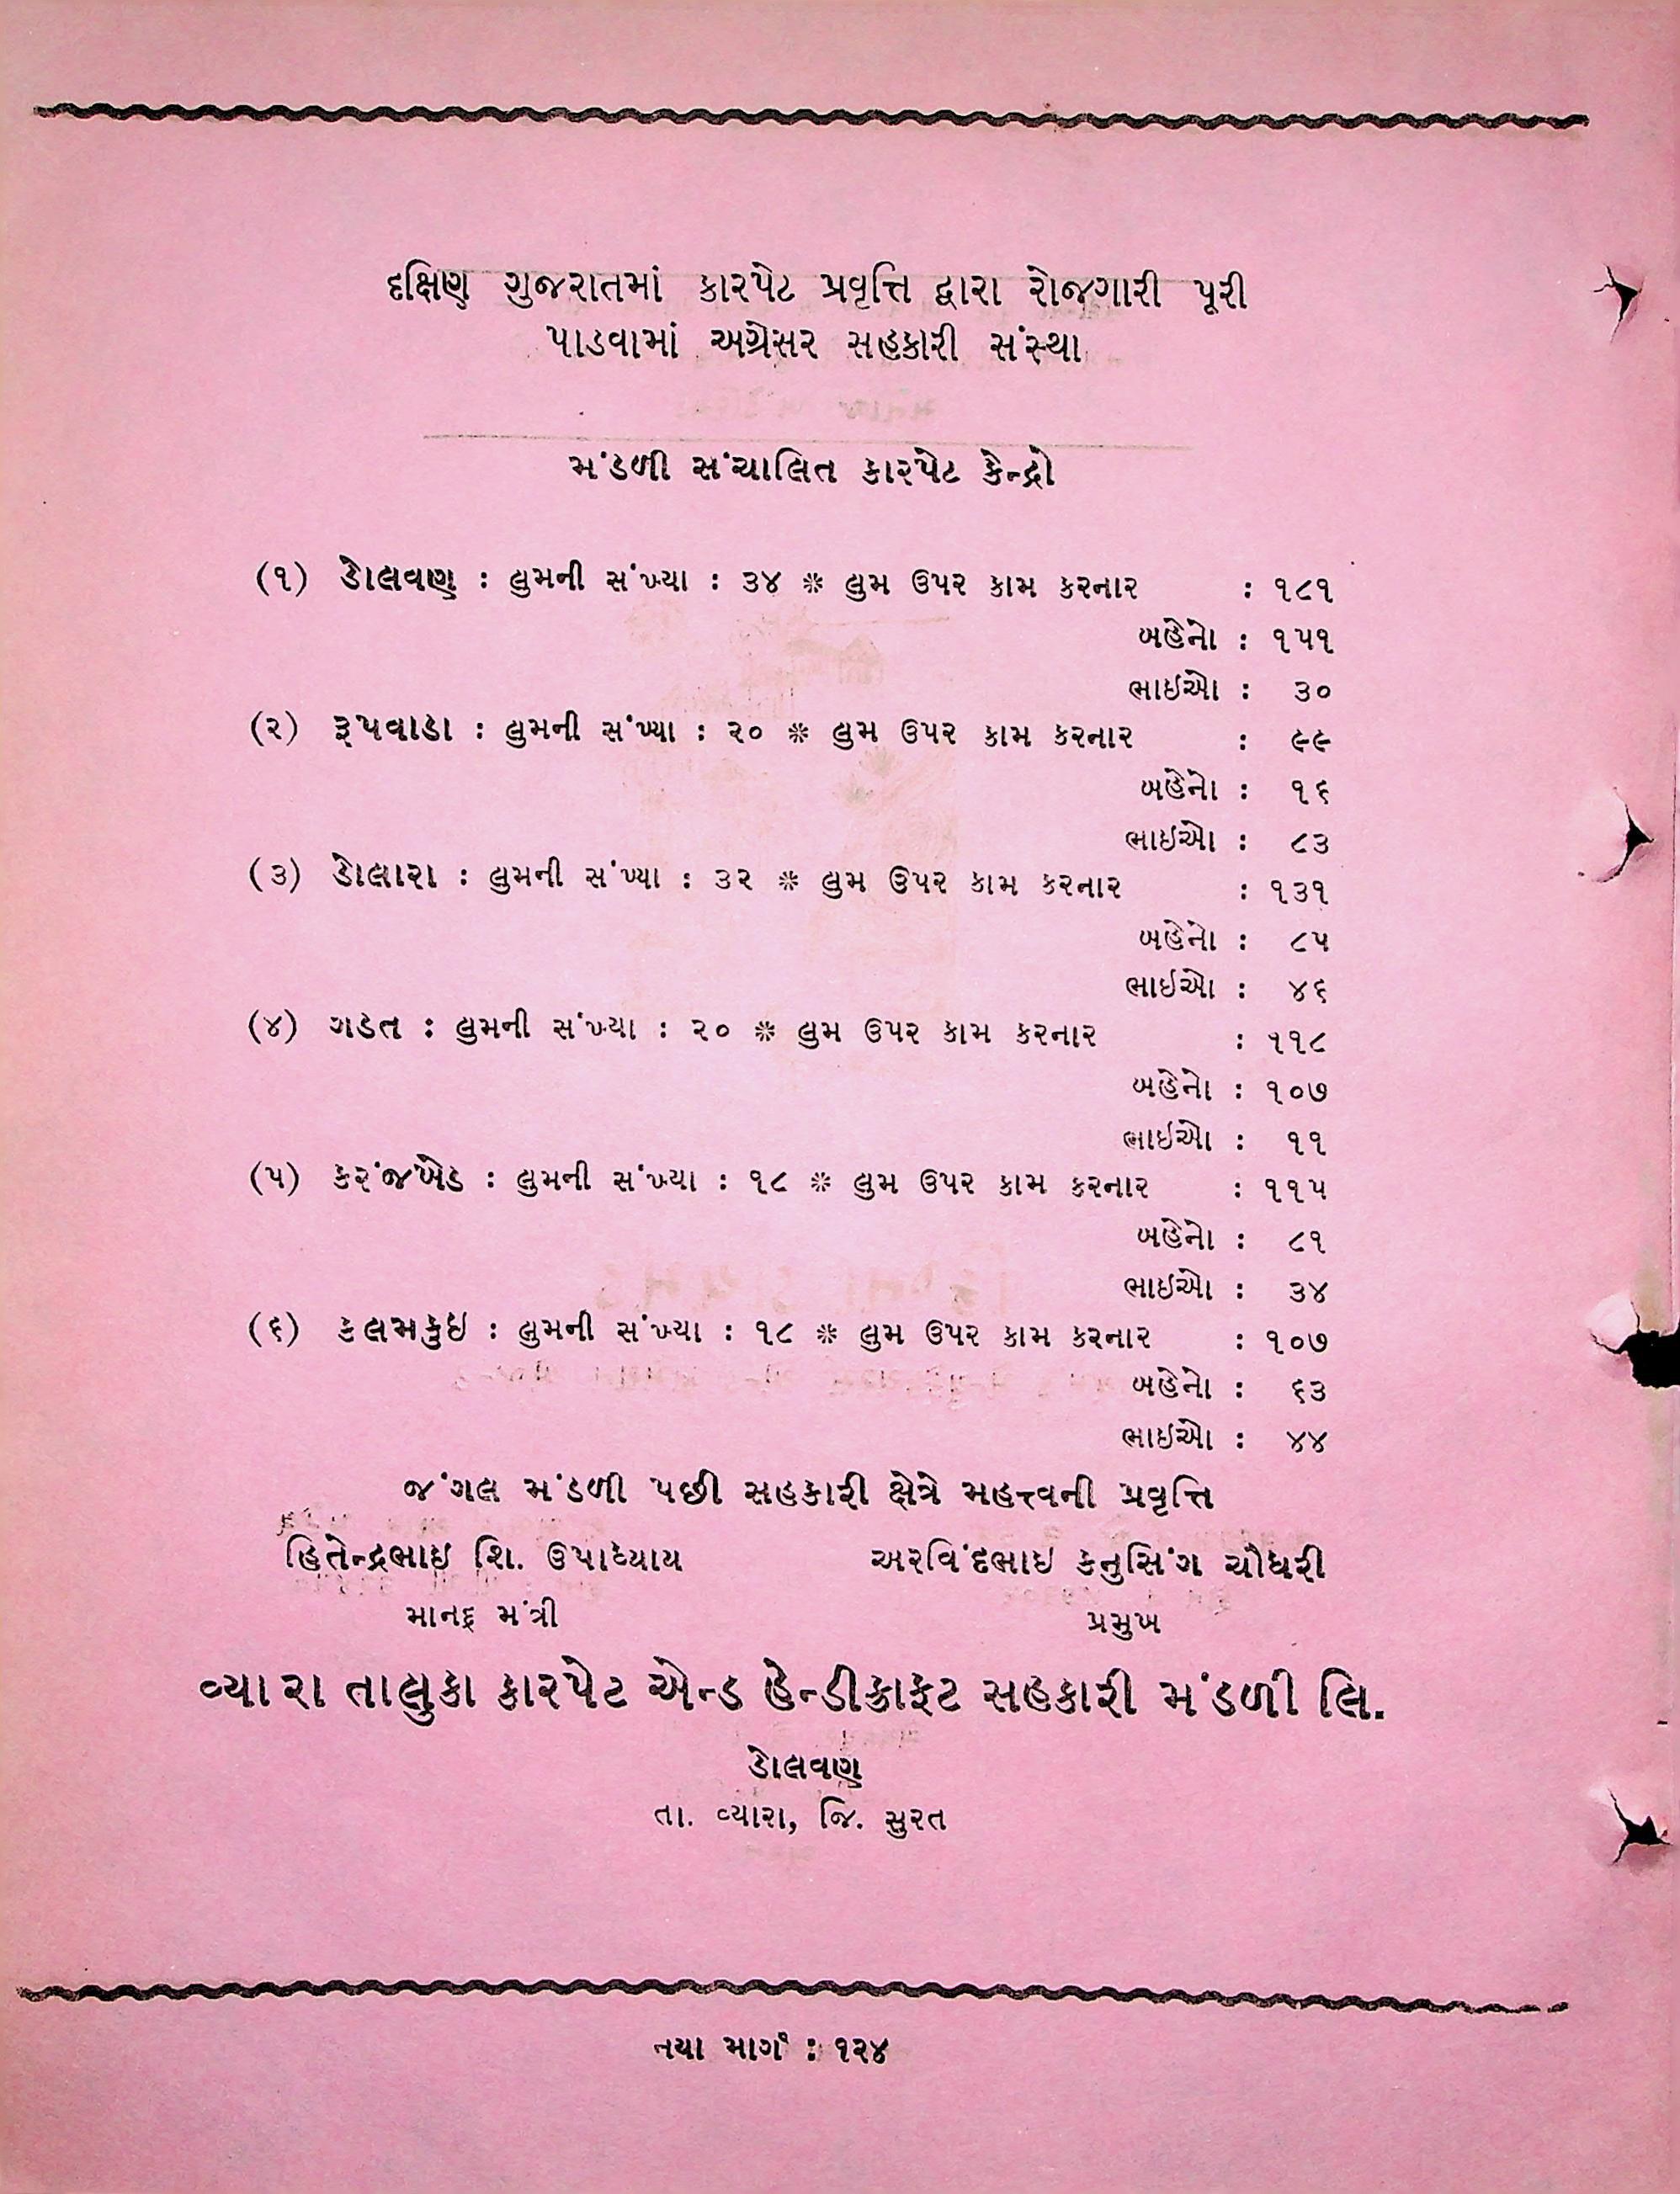 દક્ષિણ ગુજરાતમાં કારપેટ પ્રવૃત્તિ દ્વારા રોજગારી પૂરી
પાડવામાં અગ્રેસર સહકારી સંસ્થા
મંડળી સંચાલિત કારપેટ કેન્દ્રો
(૧) ડોલવણ : લુમની સંખ્યા : ૩૪ ❊ લુમ ઉપર કામ કરનાર : ૧૮૧
બહેનો : ૧૫૧
ભાઈઓ : ૩૦
(૨) રૂપવાડા : લુમની સંખ્યા : ૨૦ ❊ લુમ ઉપર કામ કરનાર : ૯૯
બહેનો : ૧૬
ભાઈઓ : ૮૩
(૩) ડોલારા : લુમની સંખ્યા : ૩૨ ❊ લુમ ઉપર કામ કરનાર : ૧૩૧
બહેનો : ૮૫
ભાઈઓ : ૪૬
(૪) ગડત : લુમની સંખ્યા : ૨૦ ❊ લુમ ઉપર કામ કરનાર : ૧૧૮
બહેનો : ૧૦૭
ભાઈઓ : ૧૧
(૫) કરંજખેડ : લુમની સંખ્યા : ૧૮ ❊ લુમ ઉપર કામ કરનાર : ૧૧૫
બહેનો : ૮૧
ભાઈઓ : ૩૪
(૬) કલમકુઇ : લુમની સંખ્યા : ૧૮ ❊ લુમ ઉપર કામ કરનાર : ૧૦૭
બહેનો : ૬૩
ભાઈઓ : ૪૪
જંગલ મંડળી પછી સહકારી ક્ષેત્રે મહત્ત્વની પ્રવૃત્તિ
હિતેન્દ્રભાઇ શિ. ઉપાધ્યાય અરવિંદભાઇ કનુસિંગ ચૌધરી
માનદ્દ મંત્રી પ્રમુખ
વ્યારા તાલુકા કારપેટ એન્ડ હેન્ડીક્રાફ્ટ સહકારી મંડળી લિ.
ડોલવણ
તા. વ્યારા, જિ. સુરત
નયા માર્ગ : ૧૨૪